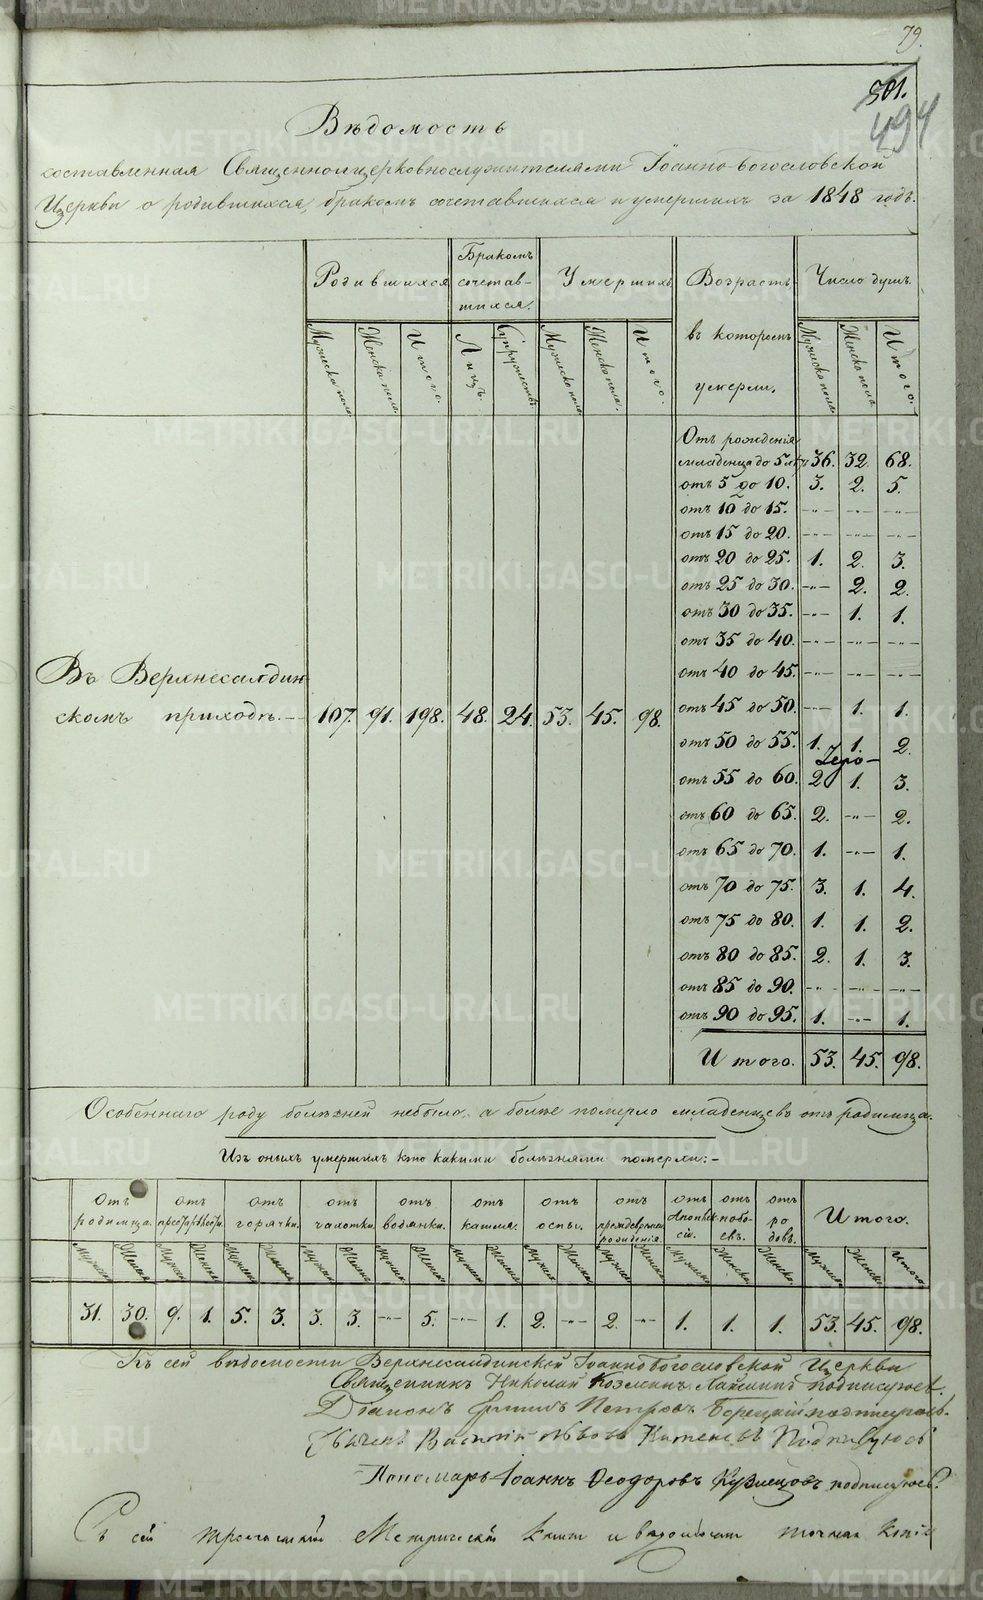 79.
501.
494
Вѣдомость
составленная Священноцерковнослужителями Іоанно-богословской
Церкви о родившихся, бракомъ сочетавшихся и умершихъ за 1848 годъ.
Родившихся Бракомъ сочетав-шихся. Умершихъ Возрастъ въ которомъ умерли. Число душъ.
Мужеска пола. Женска пола. Итого. Лицъ. Супружествъ Мужеска пола. Женска пола. Итого. Мужеска пола. Женска пола. Итого.
Отъ рожденія
младенца до 5 лѣтъ 36. 32. 68.
отъ 5 до 10. 3. 2. 5.
отъ 10 до 15. -"- -"- -"-
отъ 15 до 20. -"- -"- -"-
отъ 20 до 25. 1. 2. 3.
отъ 25 до 30. -"- 2. 2.
отъ 30 до 35. -"- 1. 1.
отъ 35 до 40. -"- -"- -"-
отъ 40 до 45. -"- -"- -"-
Въ Верхнесалдин
скомъ приходѣ. 107. 91. 198. 48. 24. 53. 45. 98.
отъ 45 до 50. -"- 1. 1.
отъ 50 до 55. 1. 1. 2.
отъ 55 до 60. 2 1. 3.
отъ 60 до 65. 2. -"- 2.
отъ 65 до 70. 1. -"- 1.
отъ 70 до 75. 3. 1. 4.
отъ 75 до 80. 1. 1. 2.
отъ 80 до 85. 2. 1. 3.
отъ 85 до 90. -"- -"- -"-
отъ 90 до 95. 1. -"- 1.
Итого. 53. 45. 98.
Особеннаго роду болѣзней небыло, а болѣе померло младенцевъ отъ родимца.
Изъ оныхъ умершихъ кто какими болѣзнями померли:-
отъ родимца. отъ отъ горячки. отъ чахотки. отъ водянки. отъ кашля. отъ оспы. отъ преждевремен рожденія. отъ отъ побо-евъ. отъ ро довъ. Итого.
Мужска Женска Мужска Женска Мужска Женска Мужска Женска Мужска Женска Мужска Женска Мужска Женска Мужска Женска Мужска Женска Женска Мужска Женска Итого
31. 30. 9. 1. 5. 3. 3. 3. -"- 5. -"- 1. 2. -"- 2. -"- 1. 1. 1. 53. 45. 98.
Къ сей вѣдомости Верхнесалдинской Іоанно богословской Церкви
Священникъ Николай Козминъ подписуюсь.
Діаконъ Петровъ подписуюсь.
Львовъ Подписуюсь
Пономарь Іоаннъ Феодоровъ Кузнецовъ подписуюсь.
Съ сей Метрической книги и вѣдомости точная копія
METRIKI.GASO-URAL.RU